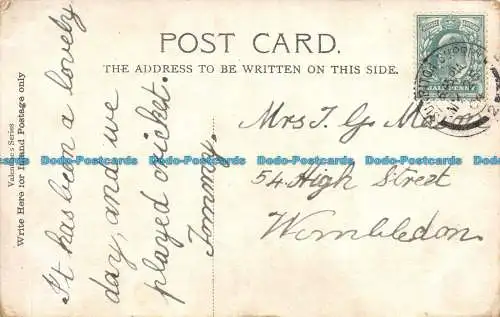 POST CARD.
THE ADDRESS TO BE WRITTEN ON THIS SIDE.
Valentine's Series
Write Here for Inland Postage only
It has been a lovely
day, and we
played cricket.
Tommy.
Mrs T. G. Mason
54 High Street
Wombledon.
HALF PENNY
Dodo-Postcards Dodo-Postcards Dodo-Postcards Dodo-Postcards